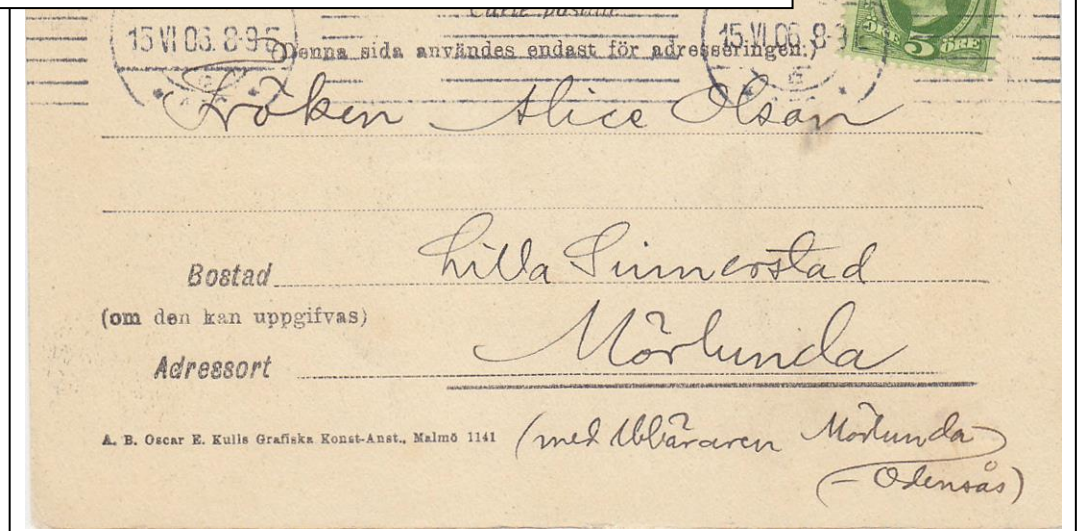 Carte postale
15 VI 06. 8-9 F
15 VI 06. 8-9
ÖRE 5 ÖRE
(Denna sida användes endast för adresseringen.)
Fröken Alice Olson
Bostad Lilla Sinnerstad
(om den kan uppgifvas)
Adressort Mörlunda
A. B. Oscar E. Kulls Grafiska Konst-Anst., Malmö 1141
(med lbbäraren Mörlunda
– Odensås)